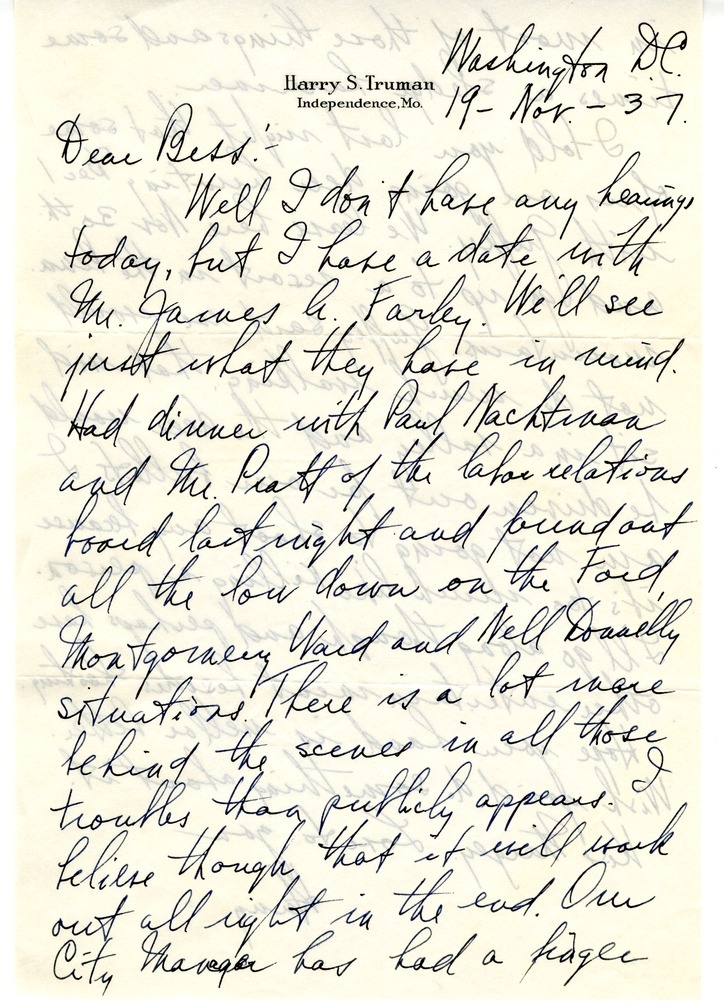 Harry S. Truman
Independence, Mo.
Washington D.C.
19 - Nov. - 37.
Dear Bess:-
Well I don't have any hearings
today, but I have a date with
Mr. James A. Farley. We'll see
just what they have in mind.
Had dinner with Paul Nachtman
and Mr. Pratt of the labor relations
board last night and found out
all the low down on the Ford,
Montgomery Ward and Nell Donnelly
situations. There is a lot more
behind the scenes in all those
troubles than publicly appears. I
believe though that it will work
out all right in the end. Our
City Manager has had a finger